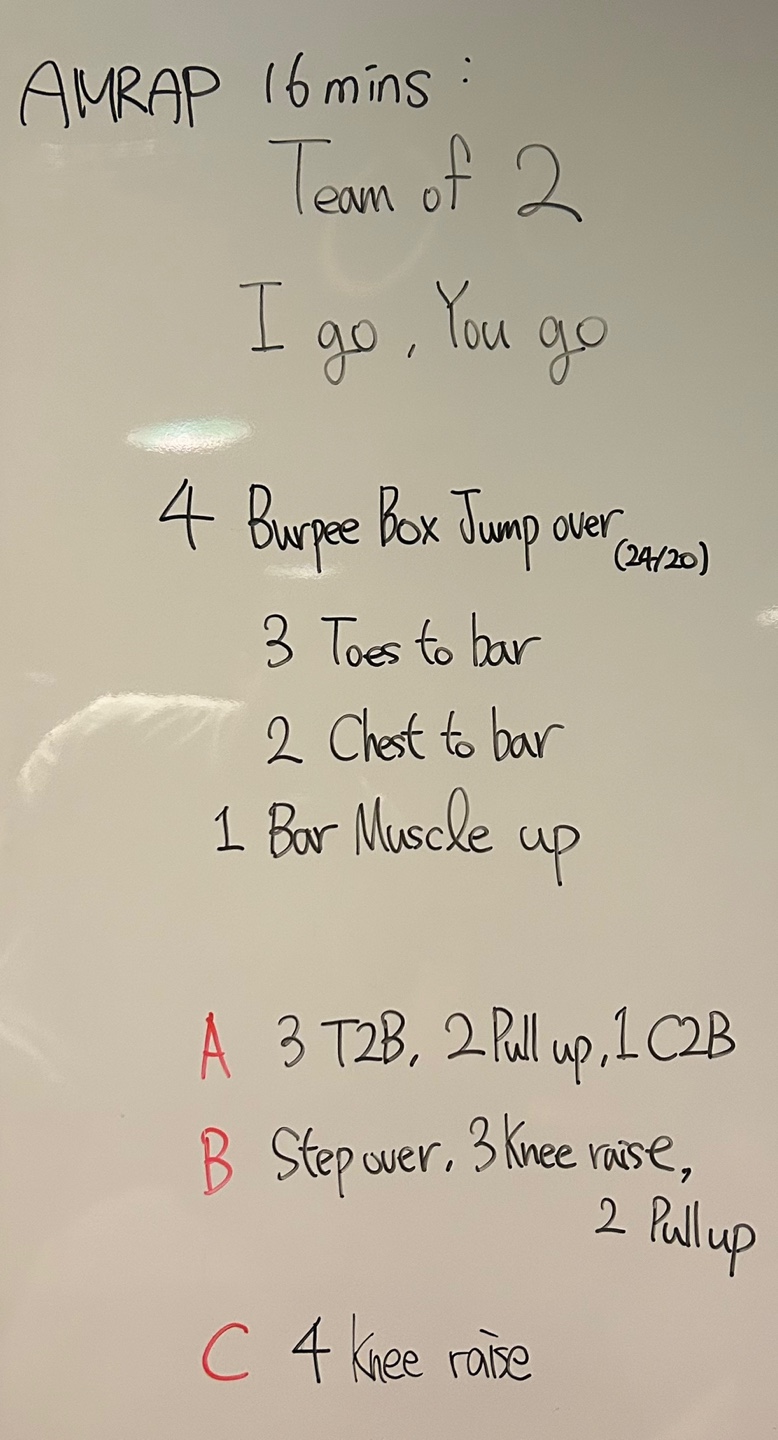 AMRAP 16 mins :
Team of 2
I go, You go
4 Burpee Box Jump over (24/20)
3 Toes to bar
2 Chest to bar
1 Bar Muscle up
A 3 T2B, 2 Pull up, 1 C2B
B Step over, 3 Knee raise,
2 Pull up
C 4 Knee raise